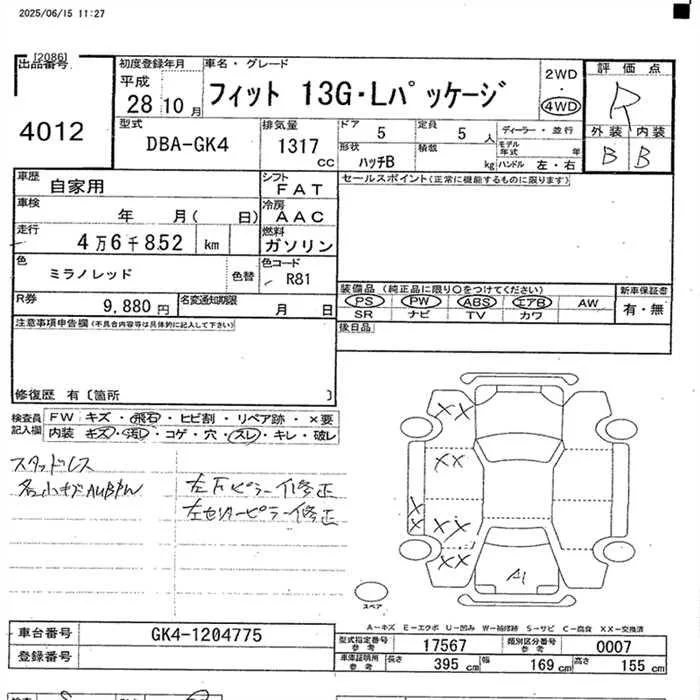 2025/06/15 11:27
[2086]
出品番号
4012
初度登録年月
平成
28 10月
車名・グレード
フィット 13G・Lパッケージ
2WD
・
4WD
評価点
R
外装 内装
B B
型式
DBA-GK4
排気量
1317
cc
ドア
5
定員
5 人
ディーラー・並行
形状
ハッチB
積載
kg
モデル年式
年
ハンドル 左・右
車歴
自家用
シフト
FAT
セールスポイント(正常に機能するものに限ります)
車検
年 月( 日)
冷房
AAC
走行
4万6千852 km
燃料
ガソリン
色
ミラノレッド
色替
色コード
R81
装備品 (純正品に限り○をつけてください)
PS PW ABS エアB AW
SR ナビ TV カワ
新車保証書
有・無
R券
9,880円
名変通知期限
月 日
後日品
注意事項申告欄(不具合内容等は具体的に記入して下さい)
修復歴 有〔箇所 〕
検査員記入欄
FW キズ・飛石・ヒビ割・リペア跡・×要
内装 キズ・汚レ・コゲ・穴・スレ・キレ・破レ
スタッドレス
各小キズAUBPW
左Fピラー修正
左センターピラー修正
XX
XX
XX
XX
XX
A1
スペア
A-キズ E-エクボ U-凹み W-補修跡 S-サビ C-腐食 XX-交換済
車台番号
GK4-1204775
登録番号
型式指定番号
参考
17567
類別区分番号
参考
0007
車庫証明用
参考
長さ 395 cm
幅 169 cm
高さ 155 cm